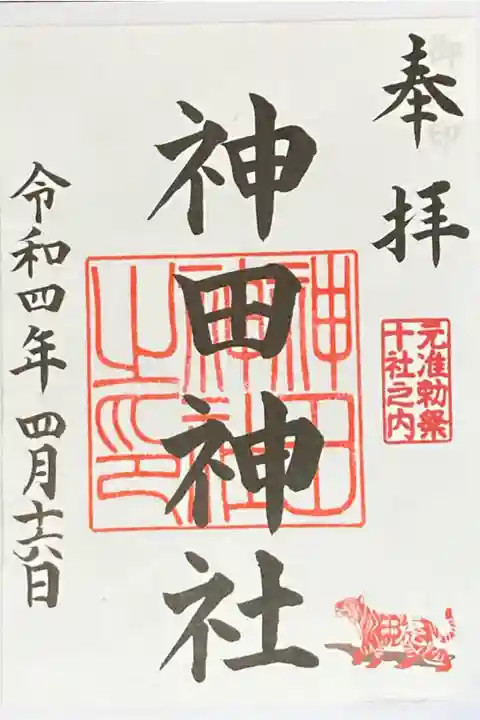 奉拝
元准勅祭
十社之内
神田神社
神田
神社
之印
令和四年四月十六日